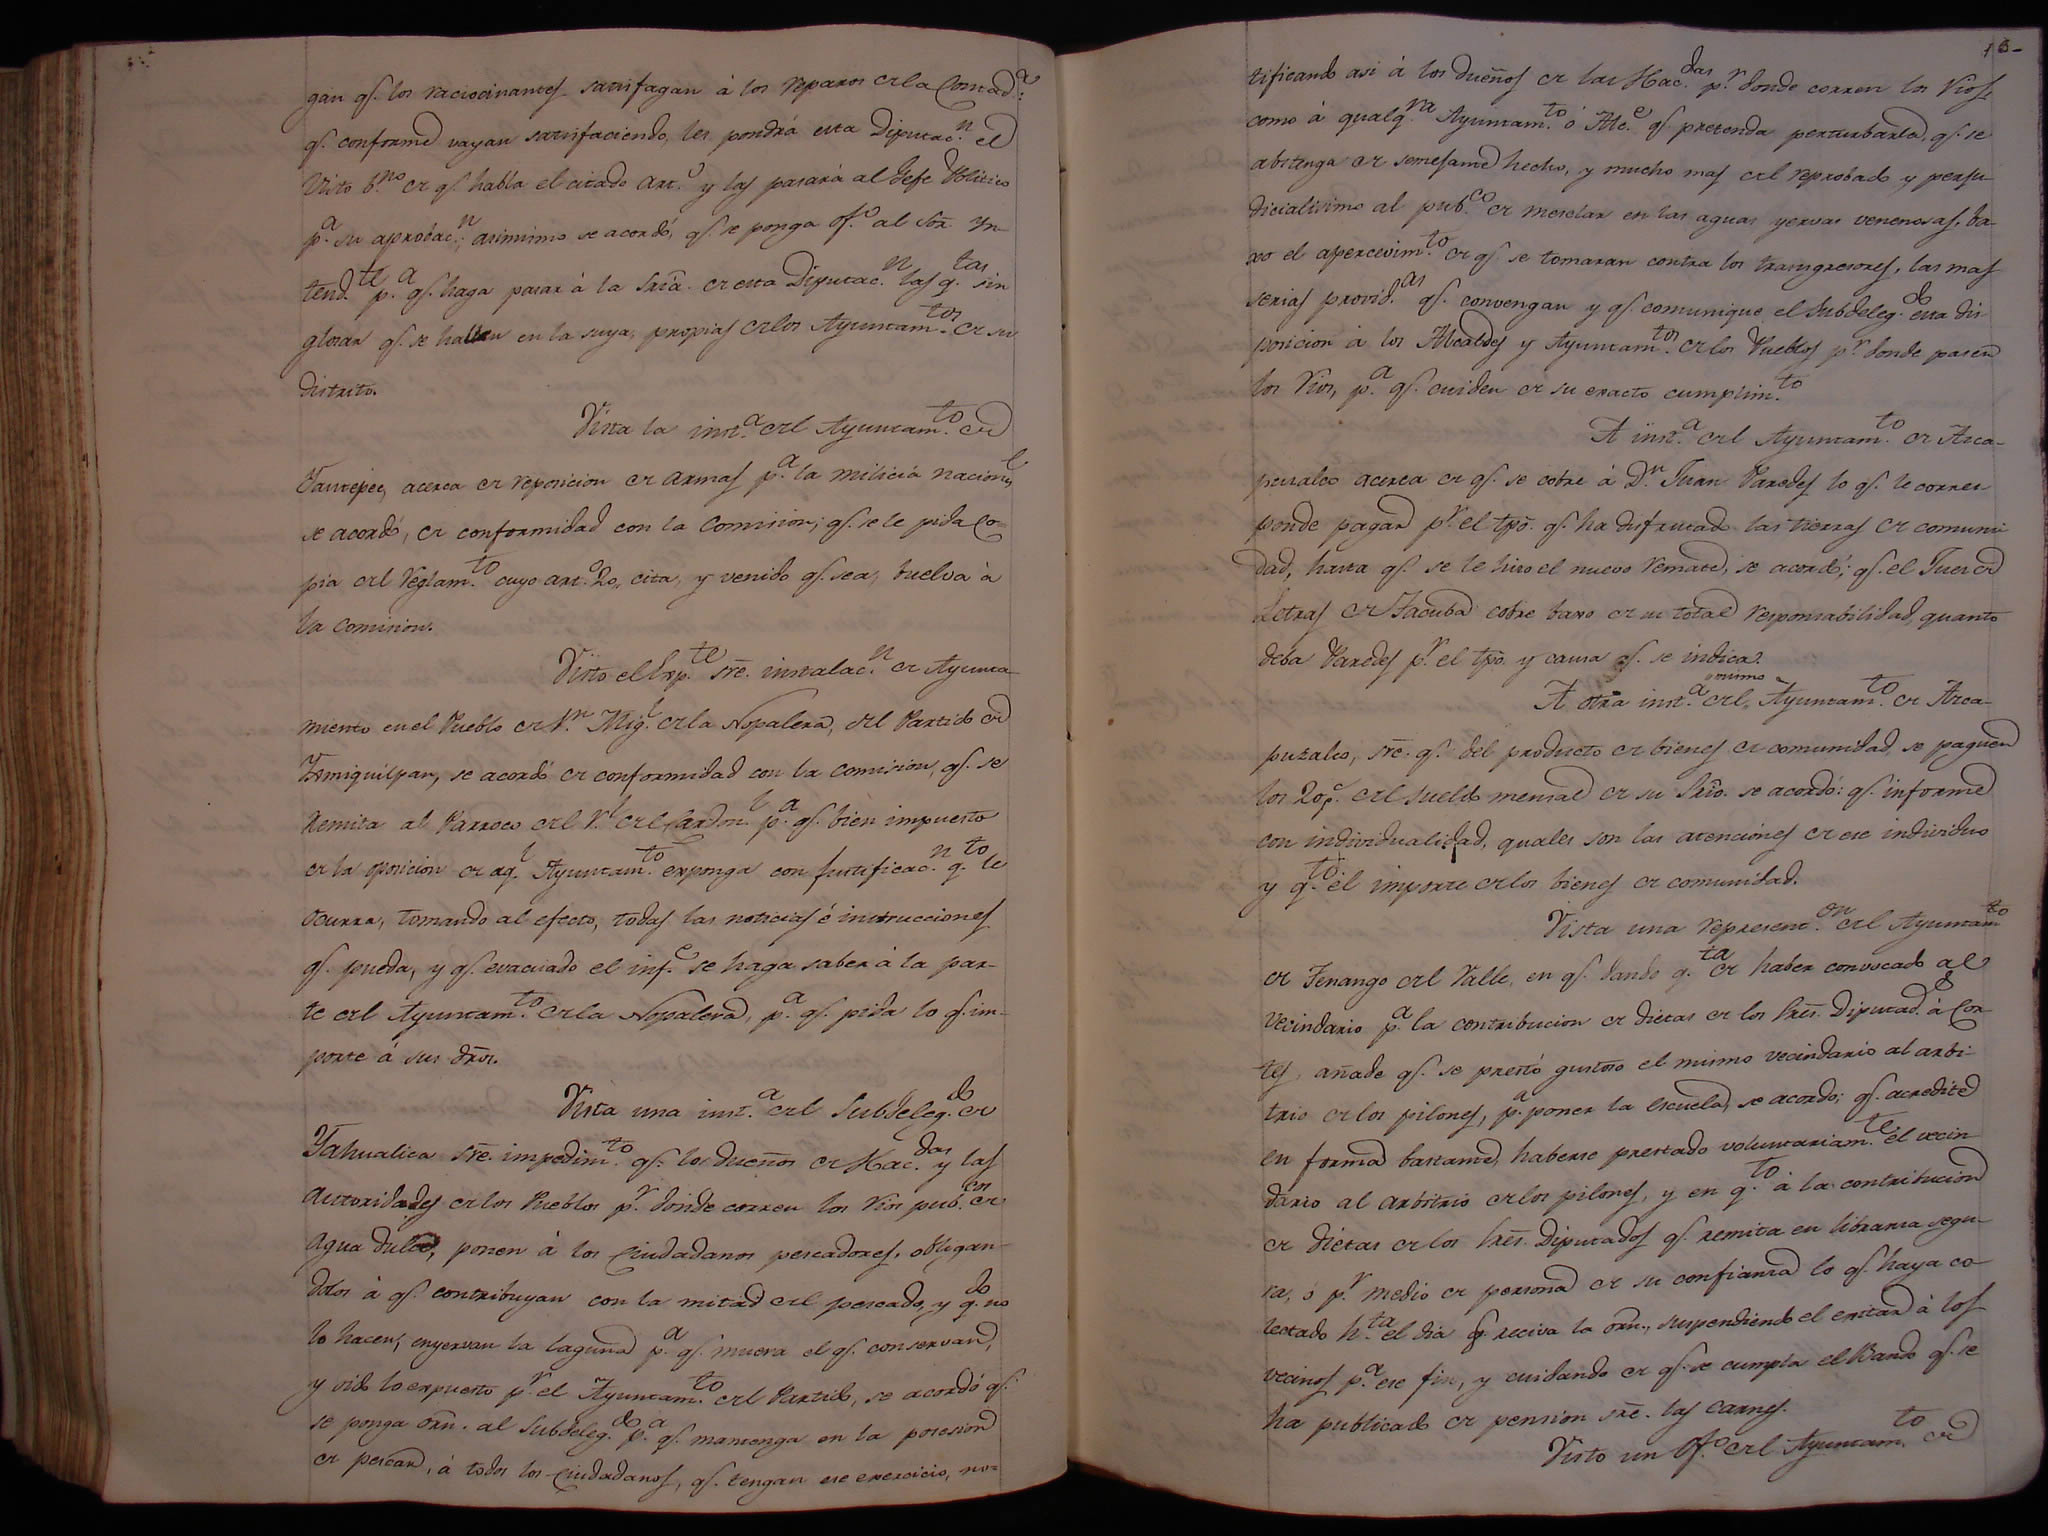 gan q.e los raciocinantes satisfagan á los reparos de la Contad.a:
q.e conforme vayan satisfaciendo, les pondrá esta Diputac.n el
Visto b.no de q.e habla el citado art.o y las pasará al Gefe Politico
p.a su aprobac.n; asimismo se acordó, q.e se ponga of.o al Sōr. Yn-
tend.te p.a q.e haga pasar á la Sriā. de esta Diputac.n las q.tas sin
glosar q.e se hallen en la suya, propias de los Ayuntam.tos de su
distrito.
Vista la inst.a del Ayuntam.to de
Yautepec, acerca de reposicion de armas p.a la milicia nacion.l,
se acordó, de conformidad con la Comision; q.e se le pida co-
pia del Reglam.to cuyo art.o 20,, cita, y venido q.e sea, buelva á
la Comision.
Visto el Exp.te sr̄e. instalac.n de Ayunta-
miento en el Pueblo de S.n Mig.l de la Nopalera, del Partido de
Ysmiquilpan, se acordó de conformidad con la comision, q.e se
remita al Párroco del R.l del Cardon.l p.a q.e bien impuesto
de la oposicion de aq.l Ayuntam.to exponga con justificac.n q.to le
ocurra, tomando al efecto, todas las noticias é instrucciones
q.e pueda, y q.e evacuado el inf.e se haga saber á la par-
te del Ayuntam.to de la Nopalera, p.a q.e pida lo q.e im-
porte á sus dr̄os.
Vista una inst.a del Subdeleg.do de
Yahualica sr̄e. impedim.to q.e los dueños de Hac.das y las
autoridades de los Pueblos p.r donde corren los Rios pub.cos de
agua dulce, ponen á los Ciudadanos pescadores, obligan-
dolos á q.e contribuyan con la mitad del pescado, y q.do no
lo hacen, enyervan la laguna p.a q.e muera el q.e conservan,
y oido lo expuesto p.r el Ayuntam.to del Partido, se acordó q.e
se ponga orn̄. al Subdeleg.do p.a q.e mantenga en la posesion
de pescar, á todos los Ciudadanos, q.e tengan ese exercicio, no-
13-
tificando asi á los dueños de las Hac.das p.r donde corren los Rios,
como á qualq.ra Ayuntam.to ó Alc.e q.e pretenda perturbarlo, q.e se
abstenga de semejante hecho, y mucho mas del reprobado y perju-
dicialisimo al pub.co de mesclar en las aguas yervas venenosas, ba-
xo el apercivim.to de q.e se tomaran contra los transgresores, las mas
serias provid.as q.e convengan y q.e comunique el Subdeleg.do esta dis
posicion á los Alcaldes y Ayuntam.tos de los Pueblos p.r donde pasen
los Rios, p.a q.e cuiden de su exacto cumplim.to
A inst.a del Ayuntam.to de Asca-
pusalco acerca de q.e se cobre á D.n Juan Paredes lo q.e le corres
ponde pagar p.r el tpō. q.e ha disfrutado las tierras de comuni
dad, hasta q.e se le hizo el nuevo remate, se acordó; q.e el Juez de
Letras de Tacuba cobre baxo de su total responsabilidad, quanto
deba Paredes p.r el tpō. y causa q.e se indica.
A otra inst.a del mismo Ayuntam.to de Azca-
puzalco, sr̄e. q.e del producto de bienes de comunidad, se paguen
los 20 p.s del sueldo mensal de su Srīo. se acordó: q.e informe
con individualidad, quales son las atenciones de ese individuo
y q.to el importe de los bienes de comunidad.
Vista una represent.on del Ayuntam.to
de Tenango del Valle, en q.e dando q.ta de haber convocado al
Vecindario p.a la contribucion de dietas de los Srēs. Diputad.s á Cor-
tes, añade q.e se prestó gustoso el mismo vecindario al arbi-
trio de los pilones, p.a poner la escuela, se acordó; q.e acredite
en forma bastante, haberse prestado voluntariam.te el vecin
dario al arbitrio de los pilones, y en q.to á la contribucion
de dietas de los Srēs. Diputados q.e remita en libranza segu-
ra, ó p.r medio de persona de su confianza lo q.e haya co-
lectado h.ta el dia q.e reciva la orn̄., suspendiendo el excitar á los
vecinos p.a ese fin, y cuidando de q.e se cumpla el Bando q.e se
ha publicado de pension sr̄e. las carnes.
Visto un Of.o del Ayuntam.to de